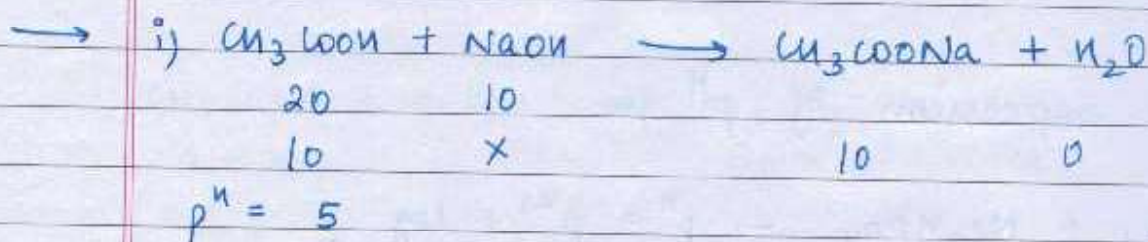 → i) CH₃COOH + NaOH ⟶ CH₃COONa + H₂O
20 10
10 × 10 0
pᴴ = 5